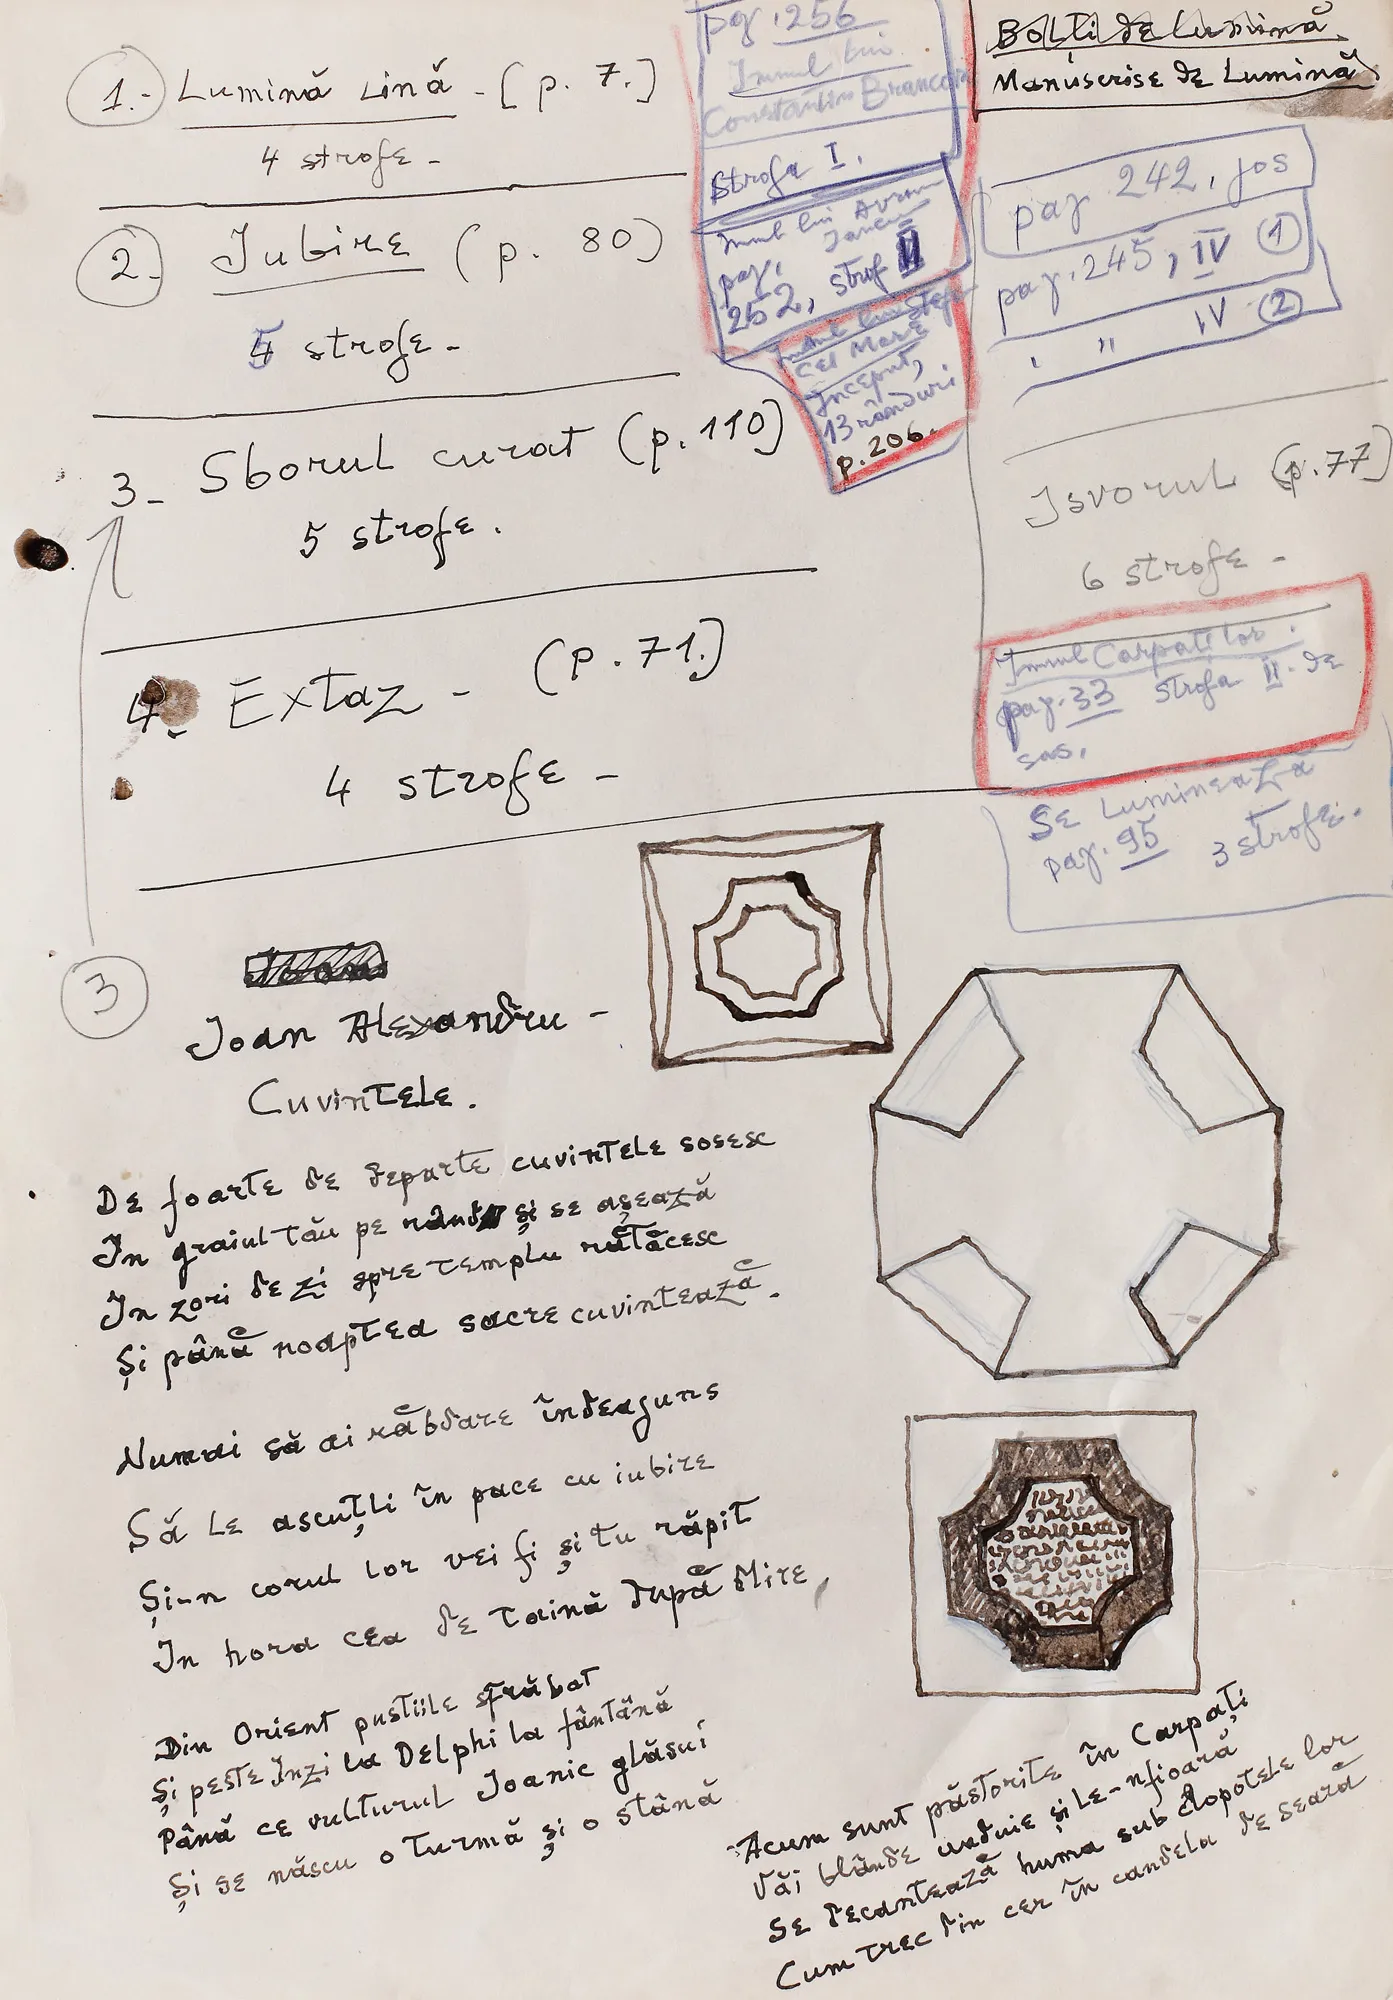 1.- Lumină Lină - [p. 7.]
4 strofe -
2. Iubire (p. 80)
5 strofe -
3- Sborul curat (p. 110)
5 strofe.
4. Extaz - (p. 71.)
4 strofe -
pag. 256
Imnul lui
Constantin Brancov
Strofa I.
Imnul lui Avram
Iancu
pag.
252, strof II
Imnul lui Ștefan
cel Mare
Început,
13 rânduri
p. 206.
Bolți de Lumină
Manuscrise de Lumină
pag 242, jos
pag. 245, IV (1)
" IV (2)
Isvorul (p. 77)
6 strofe -
Imnul Carpaților.
pag. 33 strofa II. de
sus.
Se Luminează
pag. 95 3 strofe.
3
Ioan
Ioan Alexandru -
Cuvintele.
De foarte de departe cuvintele sosesc
În graiul tău pe rând și se așează
În zori de zi spre templu rătăcesc
Și până noaptea sacre cuvintează.
Numai să ai răbdare îndeajuns
Să le ascuțli în pace cu iubire
Și-n corul lor vei fi și tu răpit
În hora cea de taină după Mire,
Din Orient pustiile străbat
Și peste Inzi la Delphi la fântână
Până ce vulturul Ioanic glăsui
Și se născu o turmă și o stână
Acum sunt păstorite în Carpați
Văi blânde unduie și le-nfioară
Se decantează huma sub clopotele lor
Cum trec din cer în candela de seară